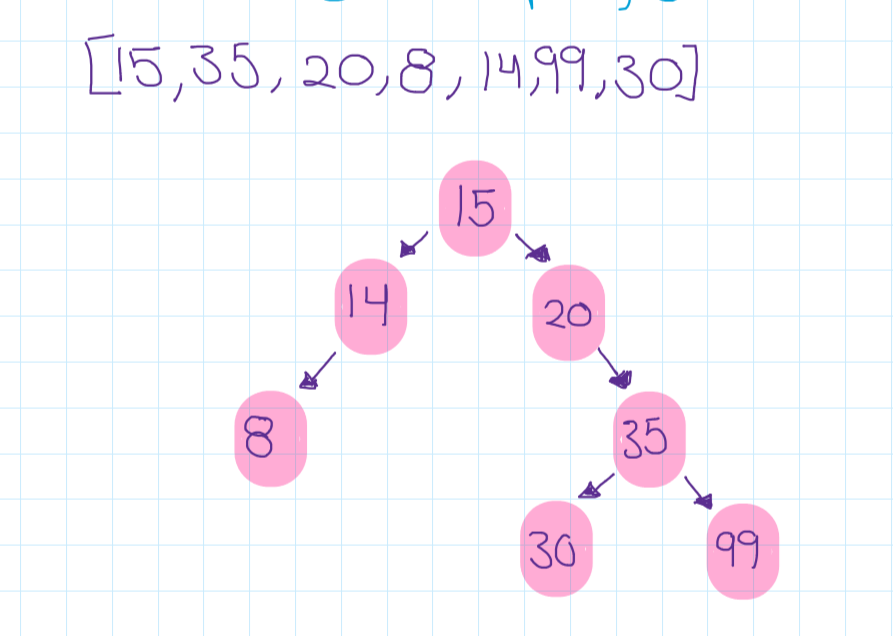 [15,35, 20,8, 14,99,30]
15
14 20
8 35
30 99